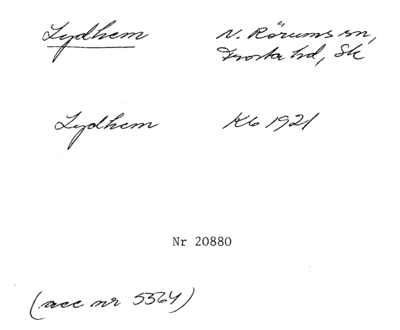 Lydhem N. Rörums sn,
Frosta hd, Sk
Lydhem Kb 1921
Nr 20880
(acc nr 5564)